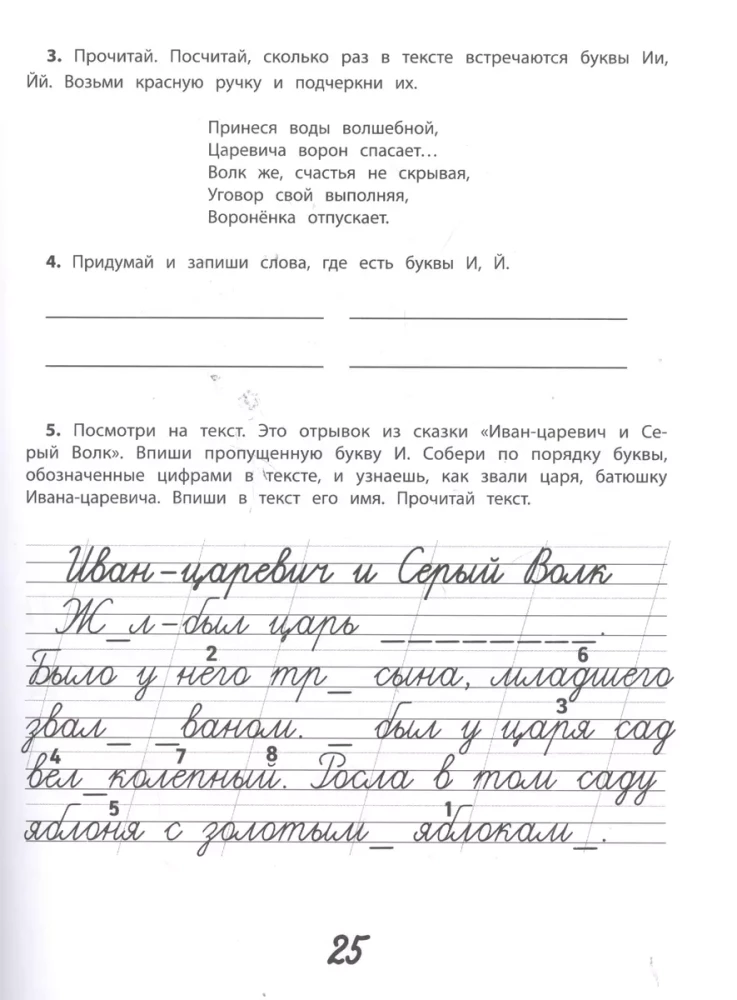 3. Прочитай. Посчитай, сколько раз в тексте встречаются буквы Ии,
Йй. Возьми красную ручку и подчеркни их.
Принеся воды волшебной,
Царевича ворон спасает...
Волк же, счастья не скрывая,
Уговор свой выполняя,
Воронёнка отпускает.
4. Придумай и запиши слова, где есть буквы И, Й.
5. Посмотри на текст. Это отрывок из сказки «Иван-царевич и Се-
рый Волк». Впиши пропущенную букву И. Собери по порядку буквы,
обозначенные цифрами в тексте, и узнаешь, как звали царя, батюшку
Ивана-царевича. Впиши в текст его имя. Прочитай текст.
Иван-царевич и Серый Волк
Ж_л-был царь _ _ _ _ _ _ _ _.
2 6
Было у него тр_ сына, младшего
3
звал_ _ваном. _ был у царя сад
4 7 8
вел_колепный. Росла в том саду
5 1
яблоня с золотым_ яблокам_.
25